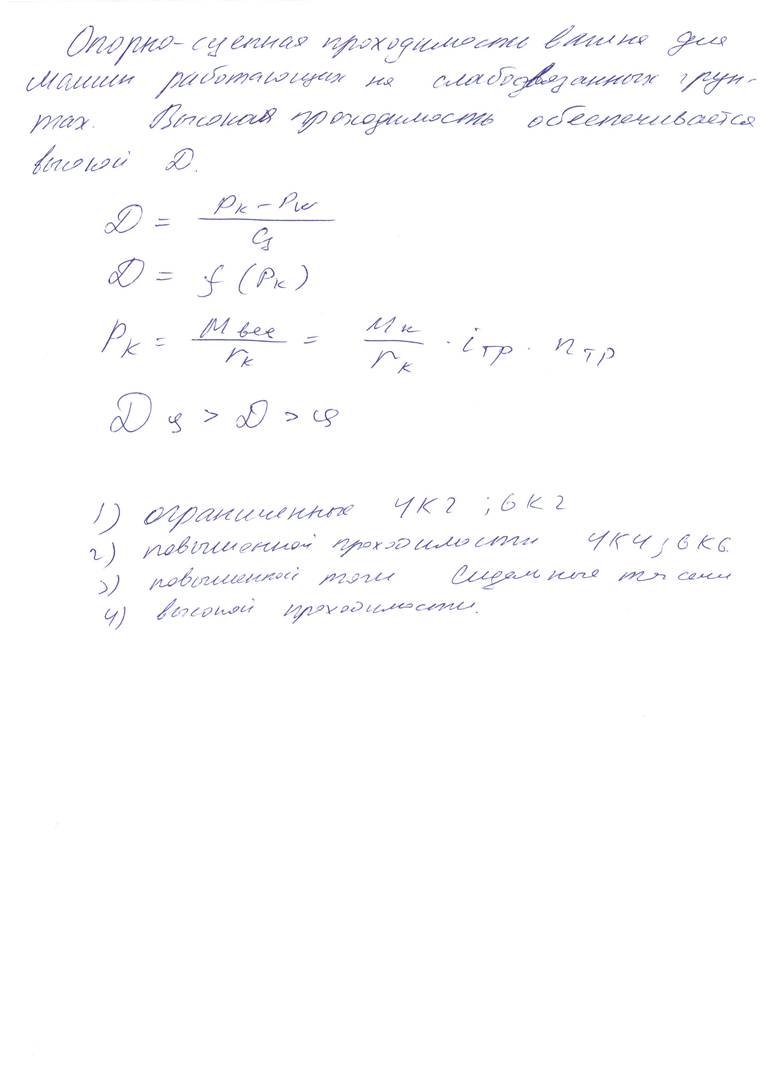 Опорно-сцепная проходимости важна для
машин работающих на слабосвязанных грун-
тах. Высокая проходимость обеспечивается
высокой D.
D = (Pк - Pw) / G
D = f (Pк)
Pк = M вед / rк = Mк / rк · iтр · nтр
D φ > D > ψ
1) ограниченные 4К2 ; 6К2
2) повышенной проходимости 4К4 ; 6К6.
3) повышенной тяги Сидельные
4) высокой проходимости.